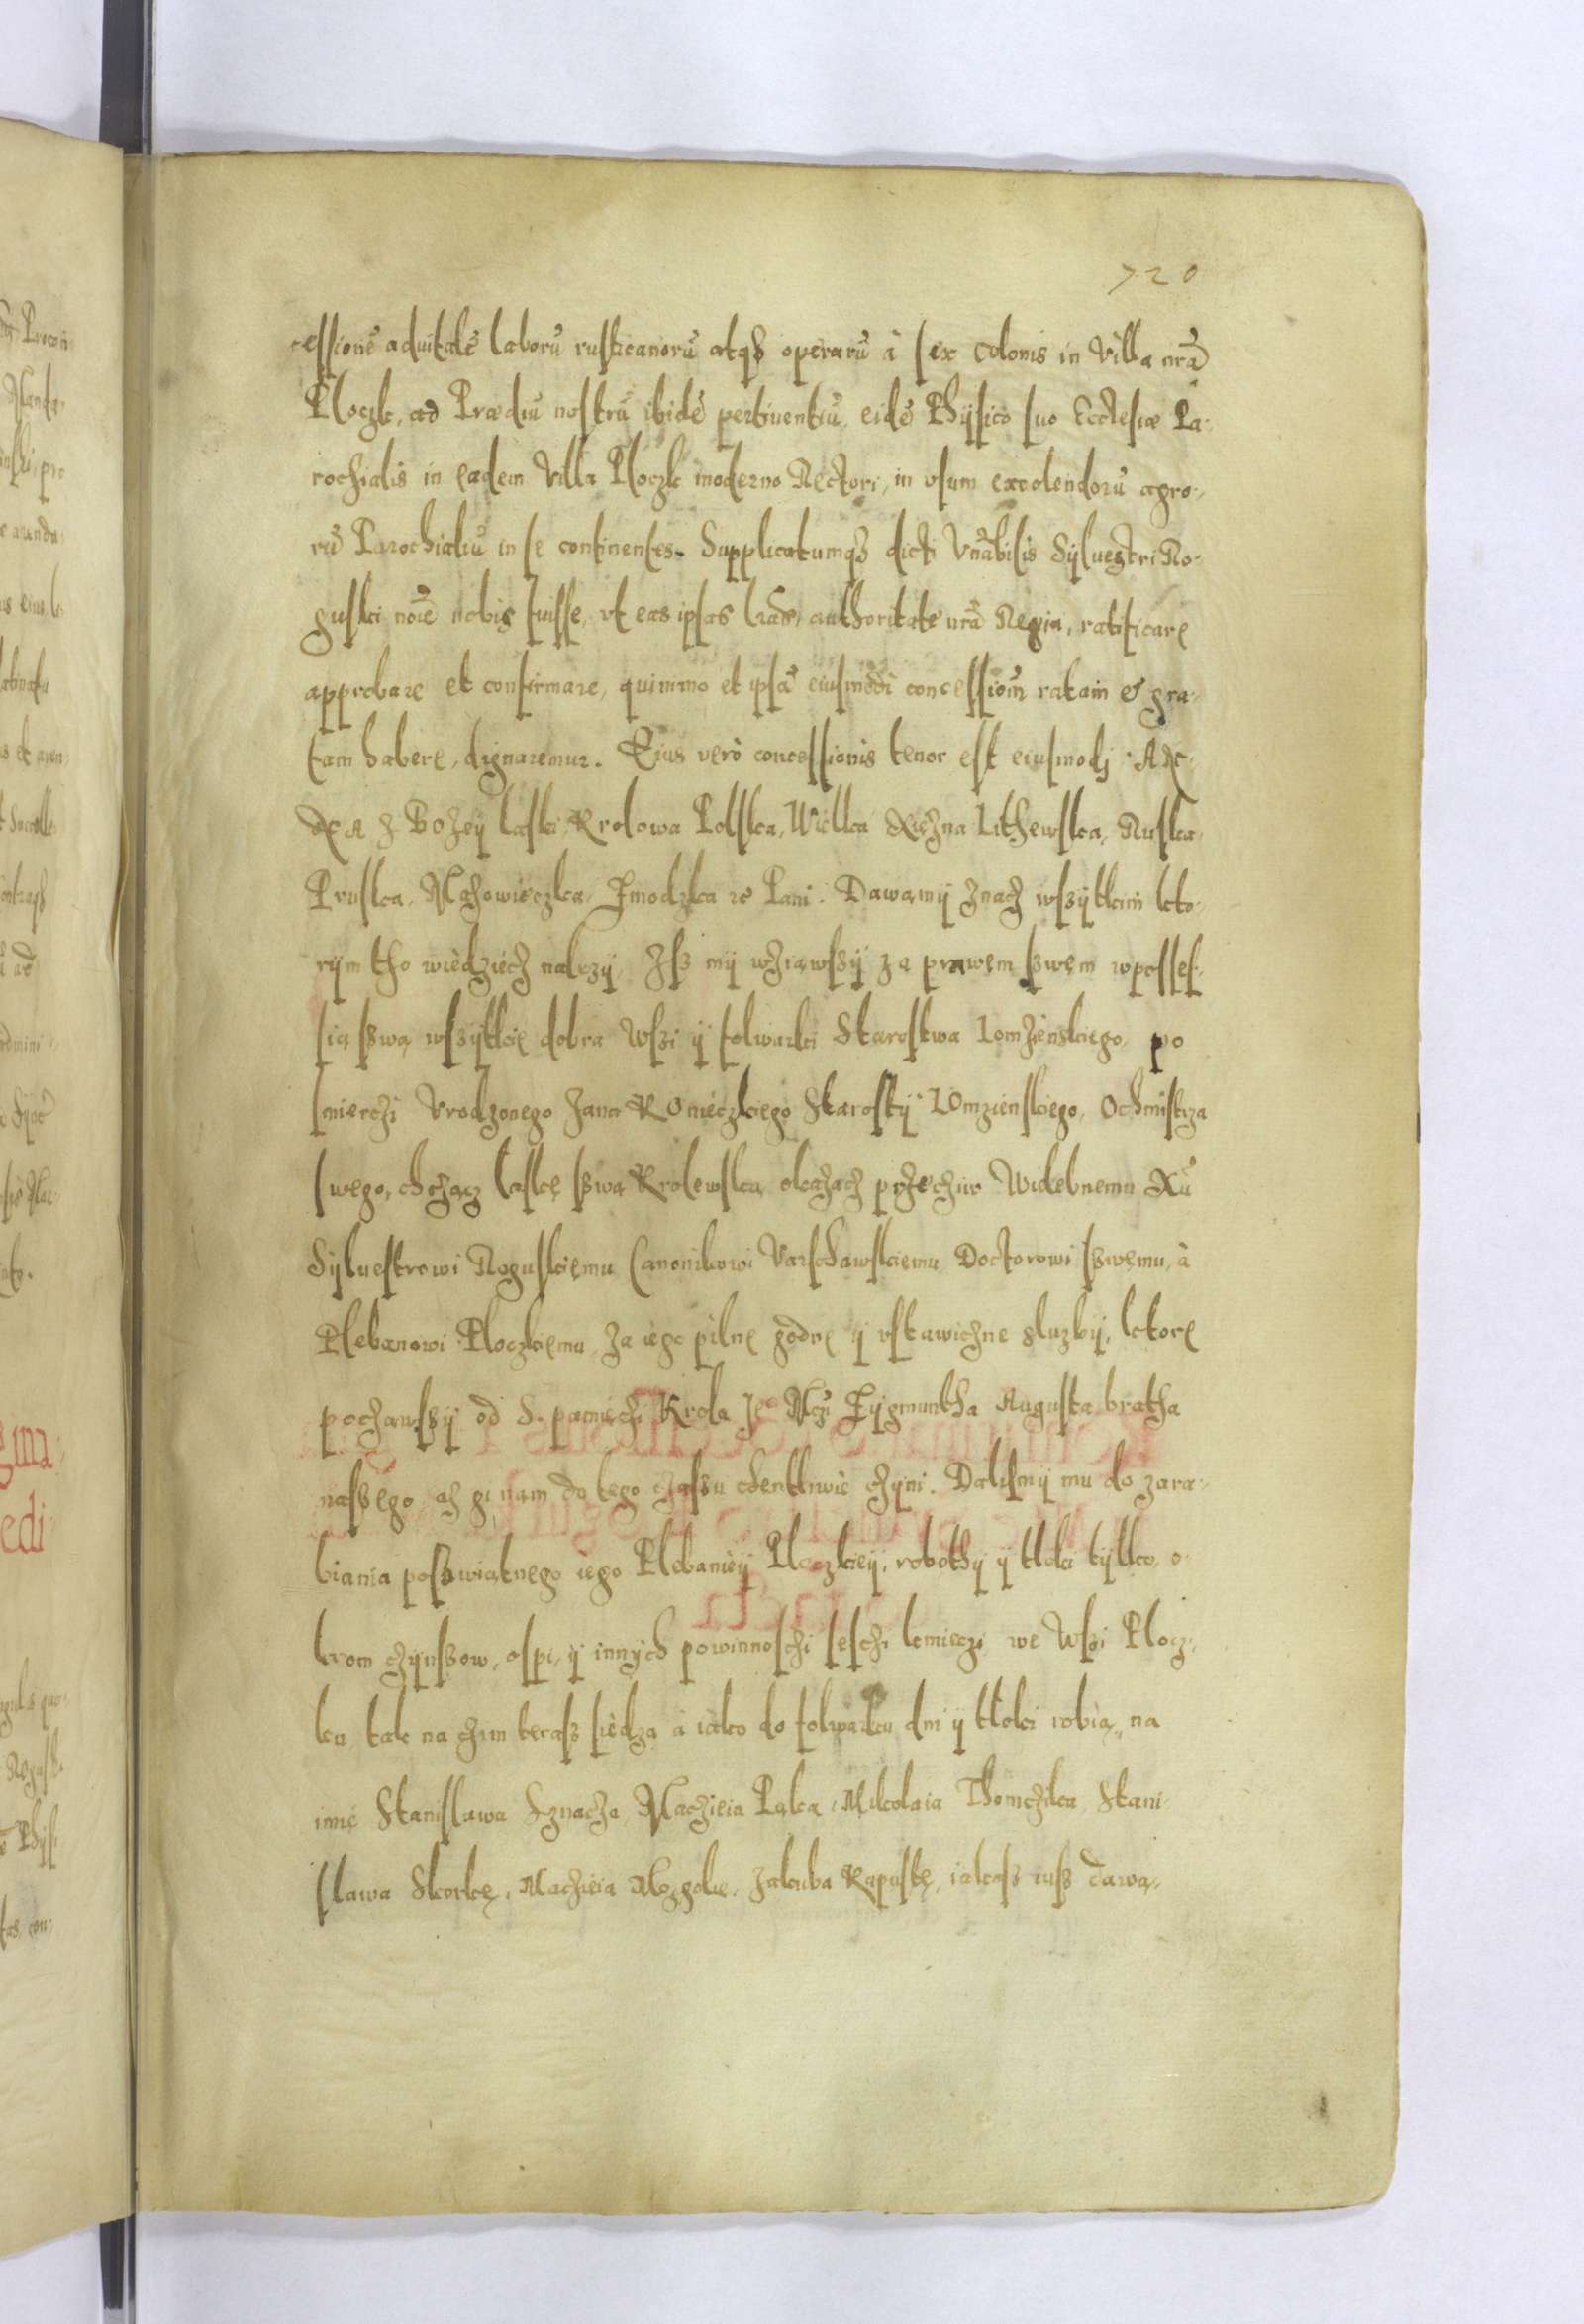 720
cessionē aduitalē laborū rusticanorū atqȝ operarū à sex colonis in Villa nr̄a
Płoczk, ad Prædiū nostrū ibidē pertinentiū, eidē Physico suo Ecclesiæ Pa-
rochialis in eadem Villa Płoczk moderno Rectori, in vsum excolendorū agro-
rū Parochialiū in se continentes. Supplicatumqȝ dicti Vn̄abilis Sÿluestri Ro-
guski noīe nobis fuisse, vt eas ipsas lr̄as, authoritate nr̄a Regia, ratificare
approbare et confirmare, quinimo et ipsā eiusmōdi concessiom̄ ratam & gra-
tam habere, dignaremur. Eius verò concessionis tenor est eiusmodj. Anna
z Bożeÿ łaski Krolowa Polska, Wielka Xiężna Lithewska, Ruska,
Pruska, Mazowieczka, Żmodzka ꝛc Pani. Dawamÿ znacz wszÿtkim kto-
rÿm tho wiedziecz należÿ, Iſz mÿ wziąwszÿ za prawem swem w posses-
sią swą wszÿtkie dobra wszi ÿ folwarki Starostwa Łomżenskiego, po
smierczi Vrodzonego Jana Konieczkiego Starostÿ Łomzienskiego, Ochmistrza
swego, chcząc łaskę swą Krolewską okazacz przeciw Wielebnemu Xū
Sÿluestrowi Roguskiemu Canonikowi Varschawskiemu Doctorowi swemu, à
Plebanowi Płoczkiemu, za iego pilne godne ÿ vstawiczne służbÿ, ktore
poczawszÿ od S. pamięczi Krola Je Mczi Zÿgmuntha Augusta bratha
naszego, aż gi nam do tego czasu chentliwie czÿni. Dalismÿ mu do zara-
biania poswiątnego iego Plebanieÿ Płoczkieÿ, robothÿ ÿ tłoki tÿlko, o-
krom czÿnszow, ospi, ÿ innÿch powinnosci sesci kmieczi we wszi Płocz-
ku tak na czim teraz siedzą à iako do folwarku dni ÿ tłoki robią, na
imię Stanisława Maczieia Mikołaia Thomczika, Stani-
sława Skorkę, Maczieia Jakuba Kapustę, iakoż iuż dawa-